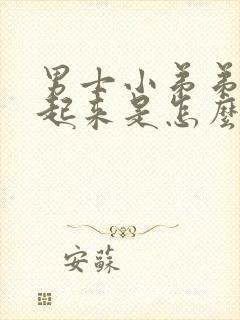 男士小弟弟
起来是怎麼
安蘇